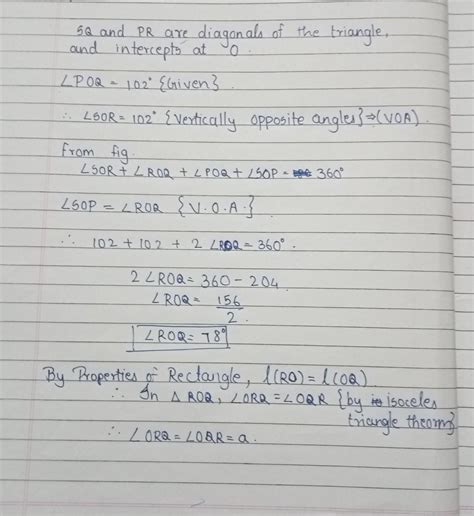 SQ and PR are diagonals of the triangle,
and intercepts at O.
∠POQ = 102° {Given}
∴ ∠SOR = 102° {Vertically opposite angles} ⇒ (VOA)
from fig.
∠SOR + ∠ROQ + ∠POQ + ∠SOP = 360°
∠SOP = ∠ROQ {V.O.A.}
∴ 102 + 102 + 2 ∠ROQ = 360°.
2 ∠ROQ = 360 - 204
∠ROQ = 156
2
∠ROQ = 78°
By Properties of Rectangle, l(RO) = l(OQ)
∴ In Δ ROQ, ∠ORQ = ∠OQR {by isoceles
triangle theorm}
∴ ∠ORQ = ∠OQR = a.